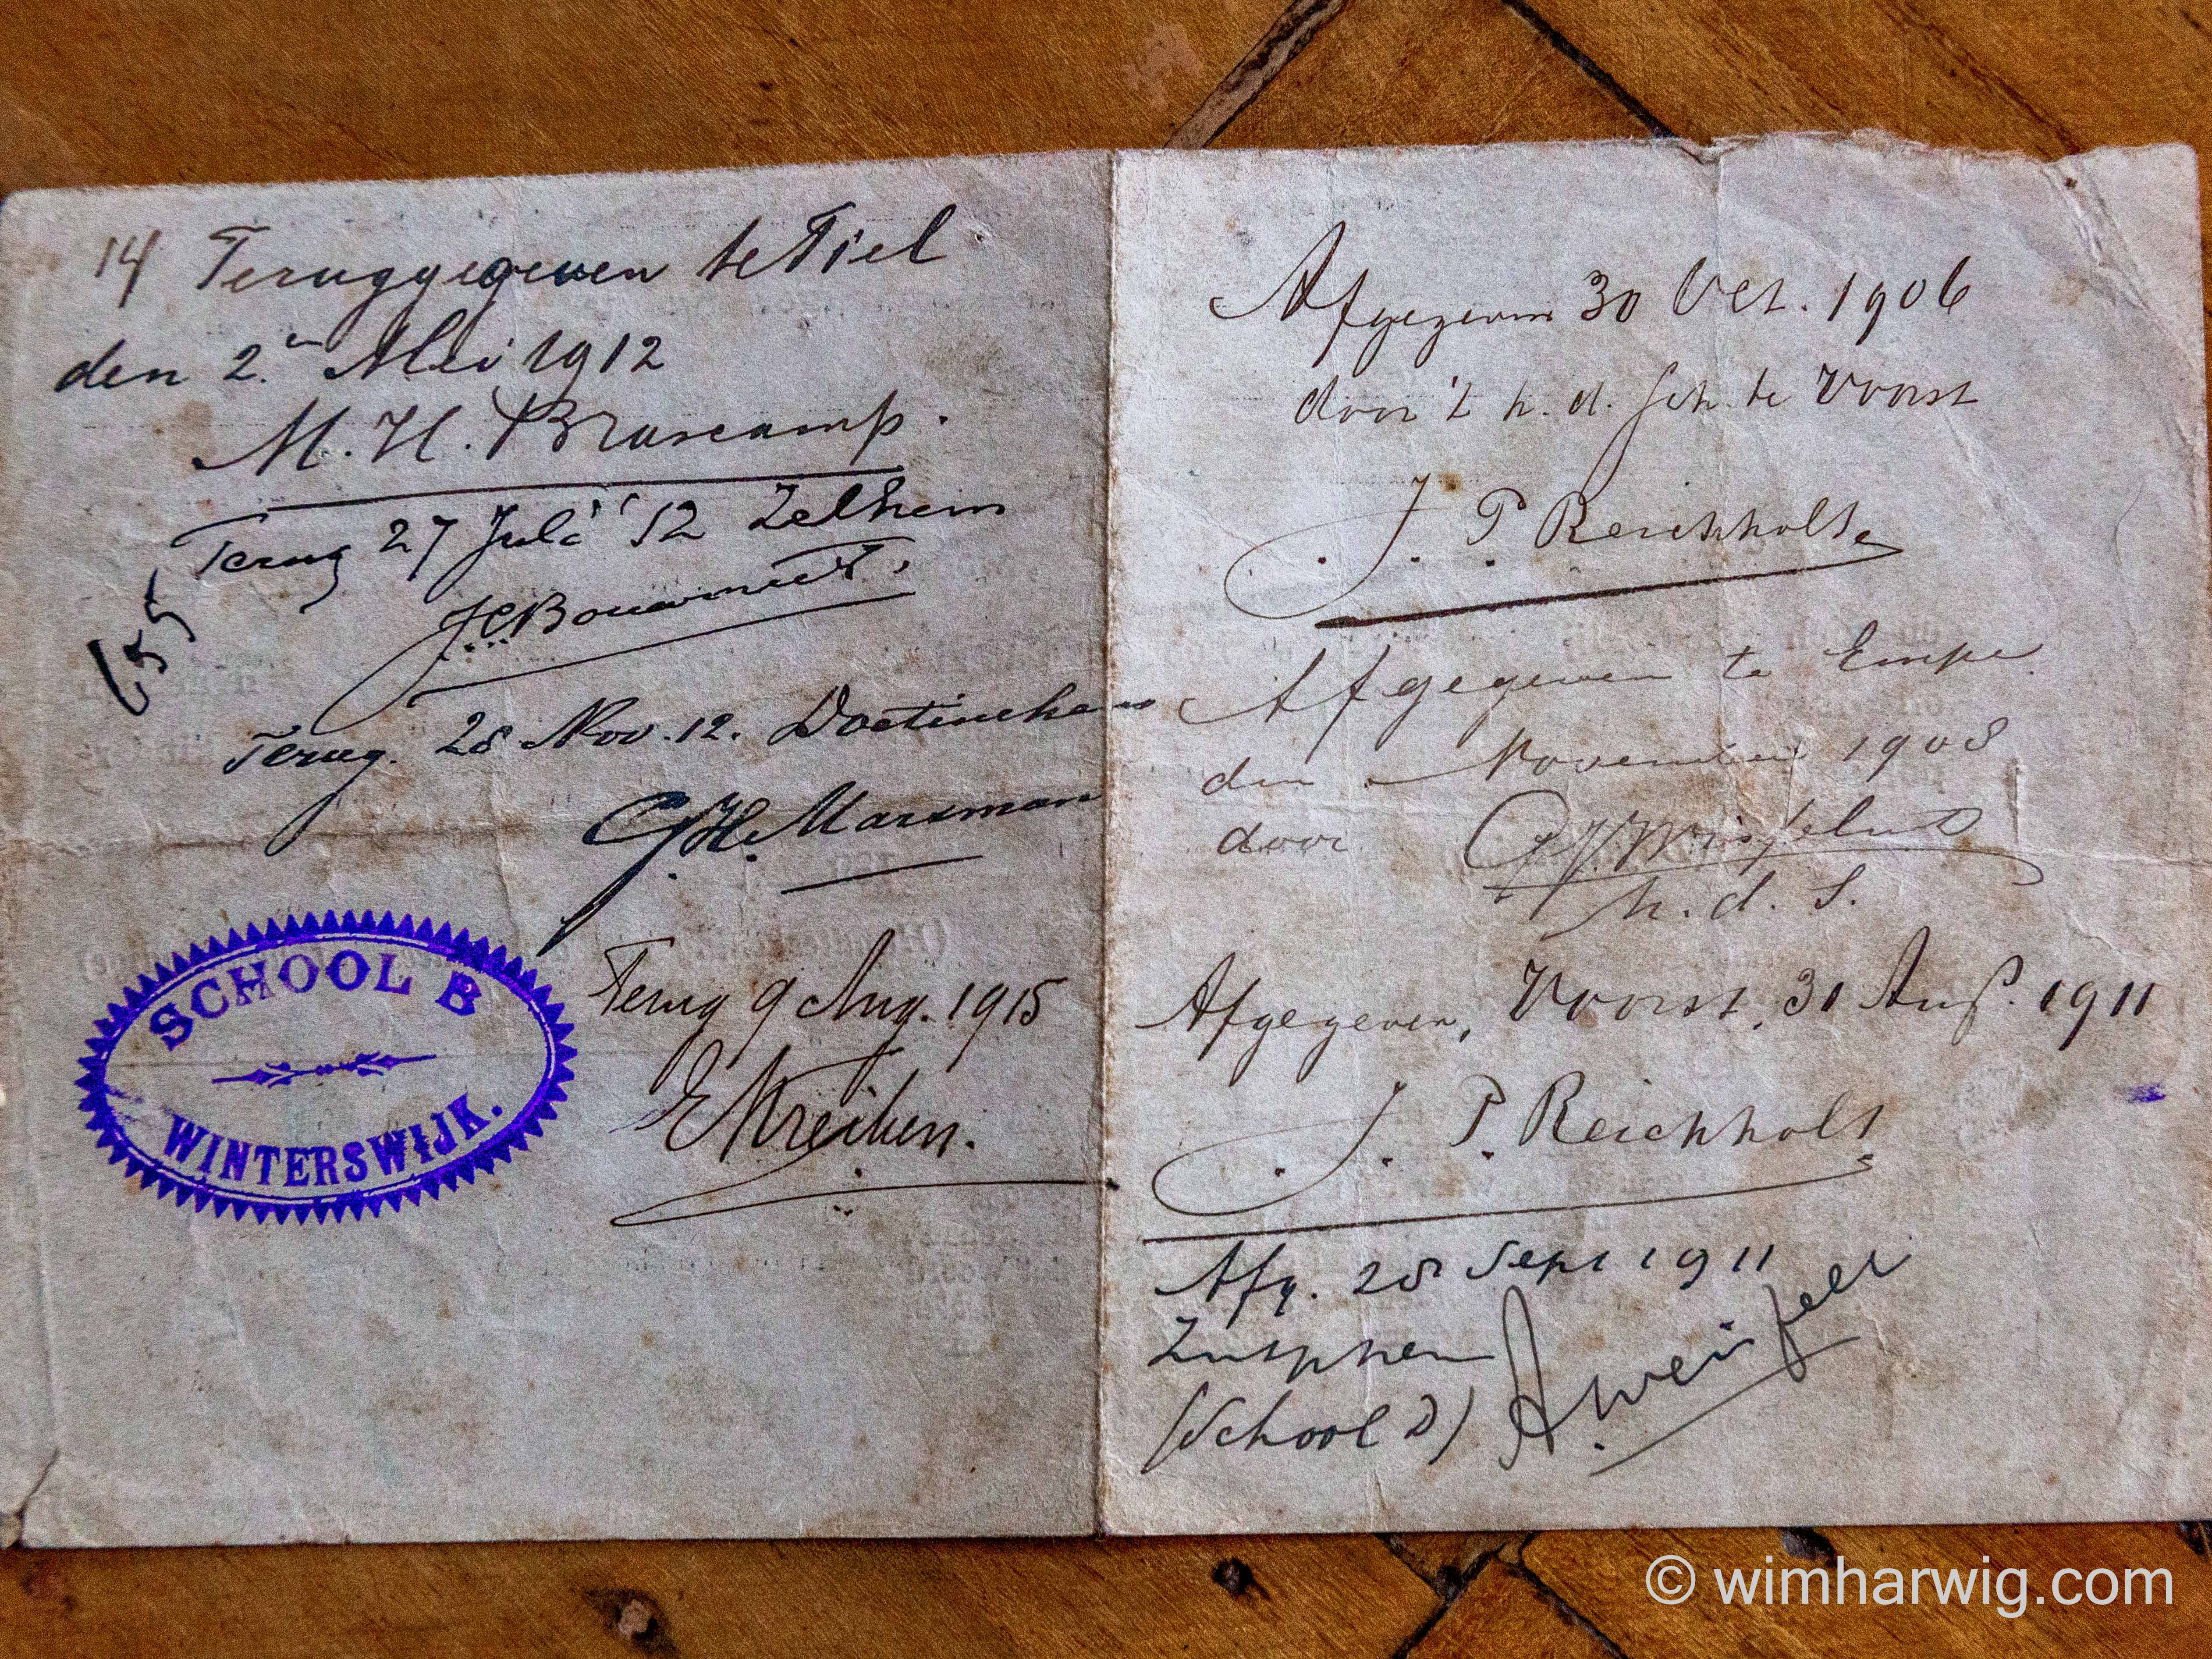 14 Teruggegeven te Tiel
den 2.en Mei 1912
M. H. Bruscamp.
Terug 27 Juli '12 Zelhem
Terug. 28 Nov. 12. Doetinchem
G.H. Marsman
SCHOOL B
WINTERSWIJK.
Terug 9 Aug. 1915
Afgegeven 30 Oct. 1906
door 't h. d. Sch. te Voorst
J. P. Reichholt
Afgegeven te Empe
den November 1908
door
h. d. S.
Afgegeven, Voorst, 31 Aug. 1911
J. P. Reichholt
Afg. 28 Sept 1911
Zutphen
(School D)
© wimharwig.com